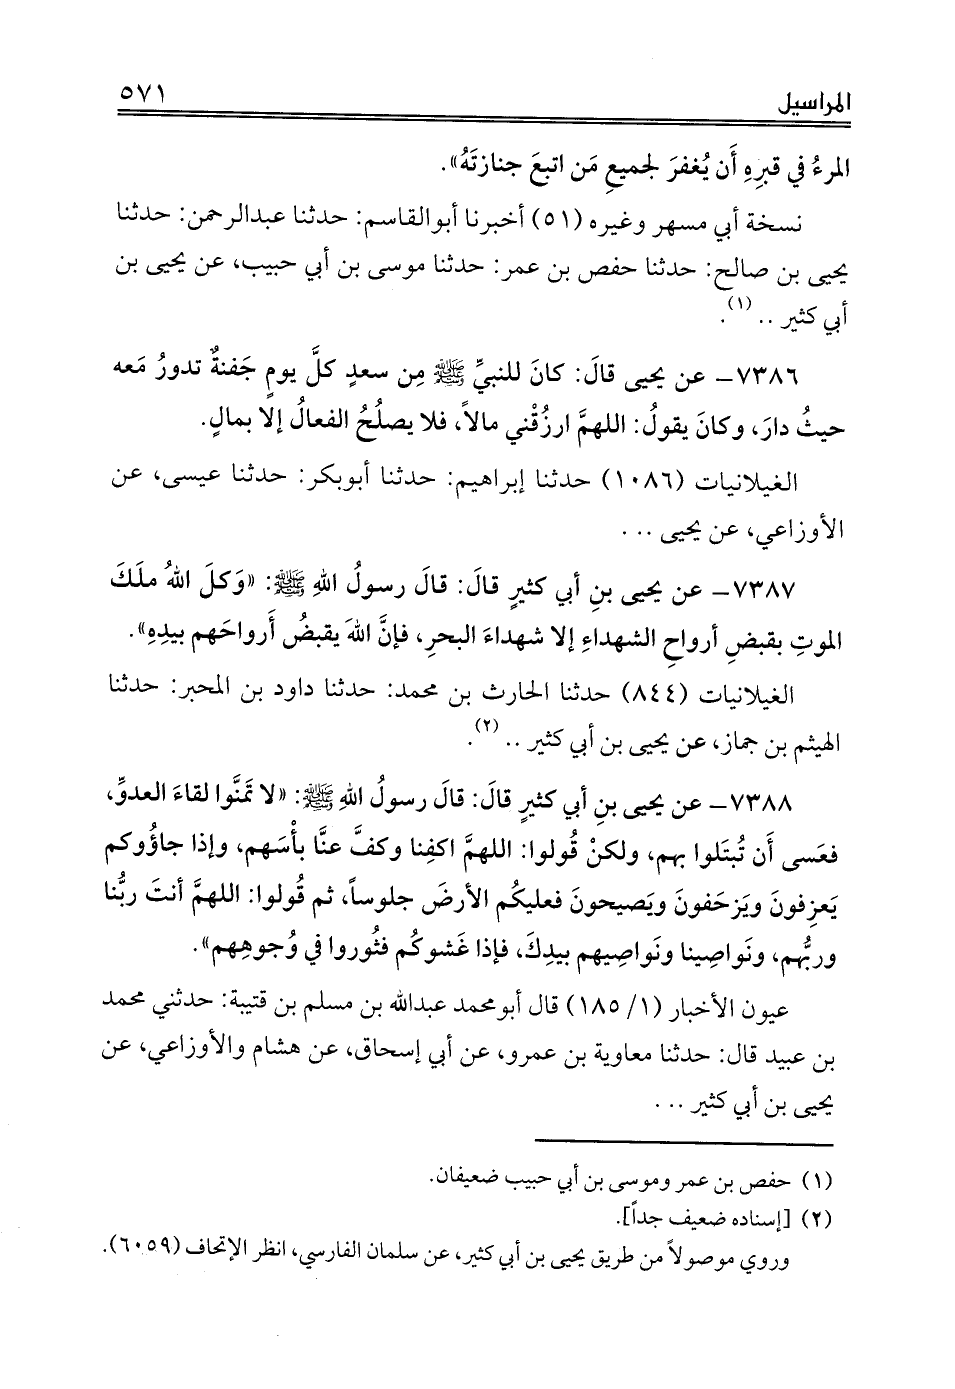 المراسيل
٥٧١
المرءُ في قبرِهِ أَن يُغفرَ لجميعِ مَن اتبعَ جنازتَهُ».
نسخة أبي مسهر وغيره (٥١) أخبرنا أبوالقاسم: حدثنا عبدالرحمن: حدثنا
يحيى بن صالح: حدثنا حفص بن عمر: حدثنا موسى بن أبي حبيب، عن يحيى بن
أبي كثير .. (١).
٧٣٨٦- عن يحيى قالَ: كانَ للنبيِّ ﷺ مِن سعدٍ كلَّ يومٍ جَفنةٌ تدورُ مَعه
حيثُ دارَ، وكانَ يقولُ: اللهمَّ ارزُقْني مالاً، فلا يصلُحُ الفعالُ إلا بمالٍ.
الغيلانيات (١٠٨٦) حدثنا إبراهيم: حدثنا أبوبكر: حدثنا عيسى، عن
الأوزاعي، عن يحيى ...
٧٣٨٧- عن يحيى بنِ أبي كثيرٍ قالَ: قالَ رسولُ اللهِ ﷺ: «وَكلَ اللهُ ملكَ
الموتِ بقبضِ أرواحِ الشهداءِ إلا شهداءَ البحرِ، فإنَّ اللهَ يقبضُ أَرواحَهم بيدِهِ».
الغيلانيات (٨٤٤) حدثنا الحارث بن محمد: حدثنا داود بن المحبر: حدثنا
الهيثم بن جماز، عن يحيى بن أبي كثير .. (٢).
٧٣٨٨- عن يحيى بنِ أبي كثيرٍ قالَ: قالَ رسولُ اللهِ ﷺ: «لا تمَنَّوا لقاءَ العدوِّ،
فعَسى أَن تُبتَلوا بهم، ولكنْ قُولوا: اللهمَّ اكفِنا وكفَّ عنَّا بأْسَهم، وإذا جاؤُوكم
يَعزِفونَ ويَزحَفونَ ويَصيحونَ فعليكُم الأرضَ جلوساً، ثم قُولوا: اللهمَّ أنتَ ربُّنا
وربُّهم، ونَواصِينا ونَواصِيهم بيدِكَ، فإذا غَشوكُم فثُوروا في وُجوهِهم».
عيون الأخبار (١/ ١٨٥) قال أبومحمد عبدالله بن مسلم بن قتيبة: حدثني محمد
بن عبيد قال: حدثنا معاوية بن عمرو، عن أبي إسحاق، عن هشام والأوزاعي، عن
يحيى بن أبي كثير ...
(١) حفص بن عمر وموسى بن أبي حبيب ضعيفان.
(٢) [إسناده ضعيف جداً].
وروي موصولاً من طريق يحيى بن أبي كثير، عن سلمان الفارسي، انظر الإتحاف (٦٠٥٩).